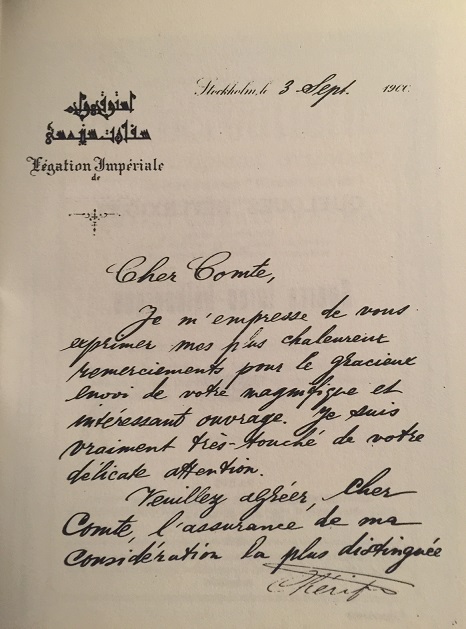 Stockholm, le 3 Sept. 190
استوقهولم
سفارت سنیه سی
Légation Impériale
de
Cher Comte,
Je m'empresse de vous
exprimer mes plus chaleureux
remerciements pour le gracieux
envoi de votre magnifique et
intéressant ouvrage. Je suis
vraiment très-touché de votre
délicate attention.
Veuillez agréer, Cher
Comte, l'assurance de ma
considération la plus distinguée
Chérif